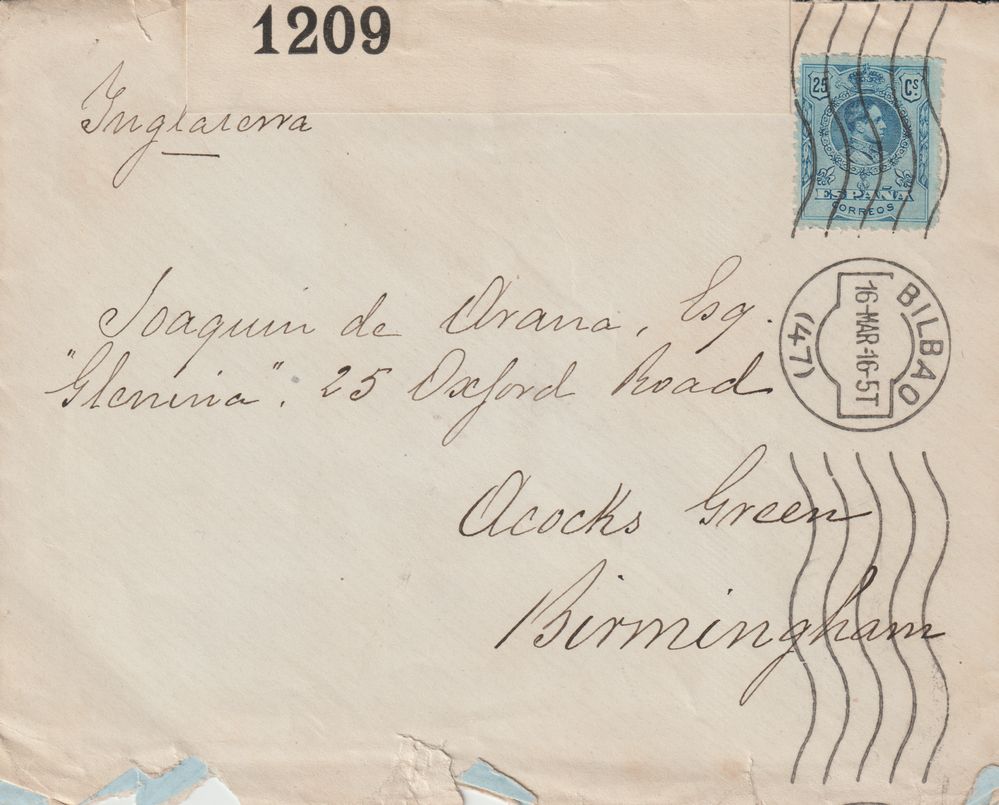 1209
Inglaterra
25 Cs
ESPAÑA
CORREOS
BILBAO
16-MAR-16-5T
(47)
Joaquin de Arana, Esq.
"Glenina". 25 Oxford Road
Acocks Green
Birmingham